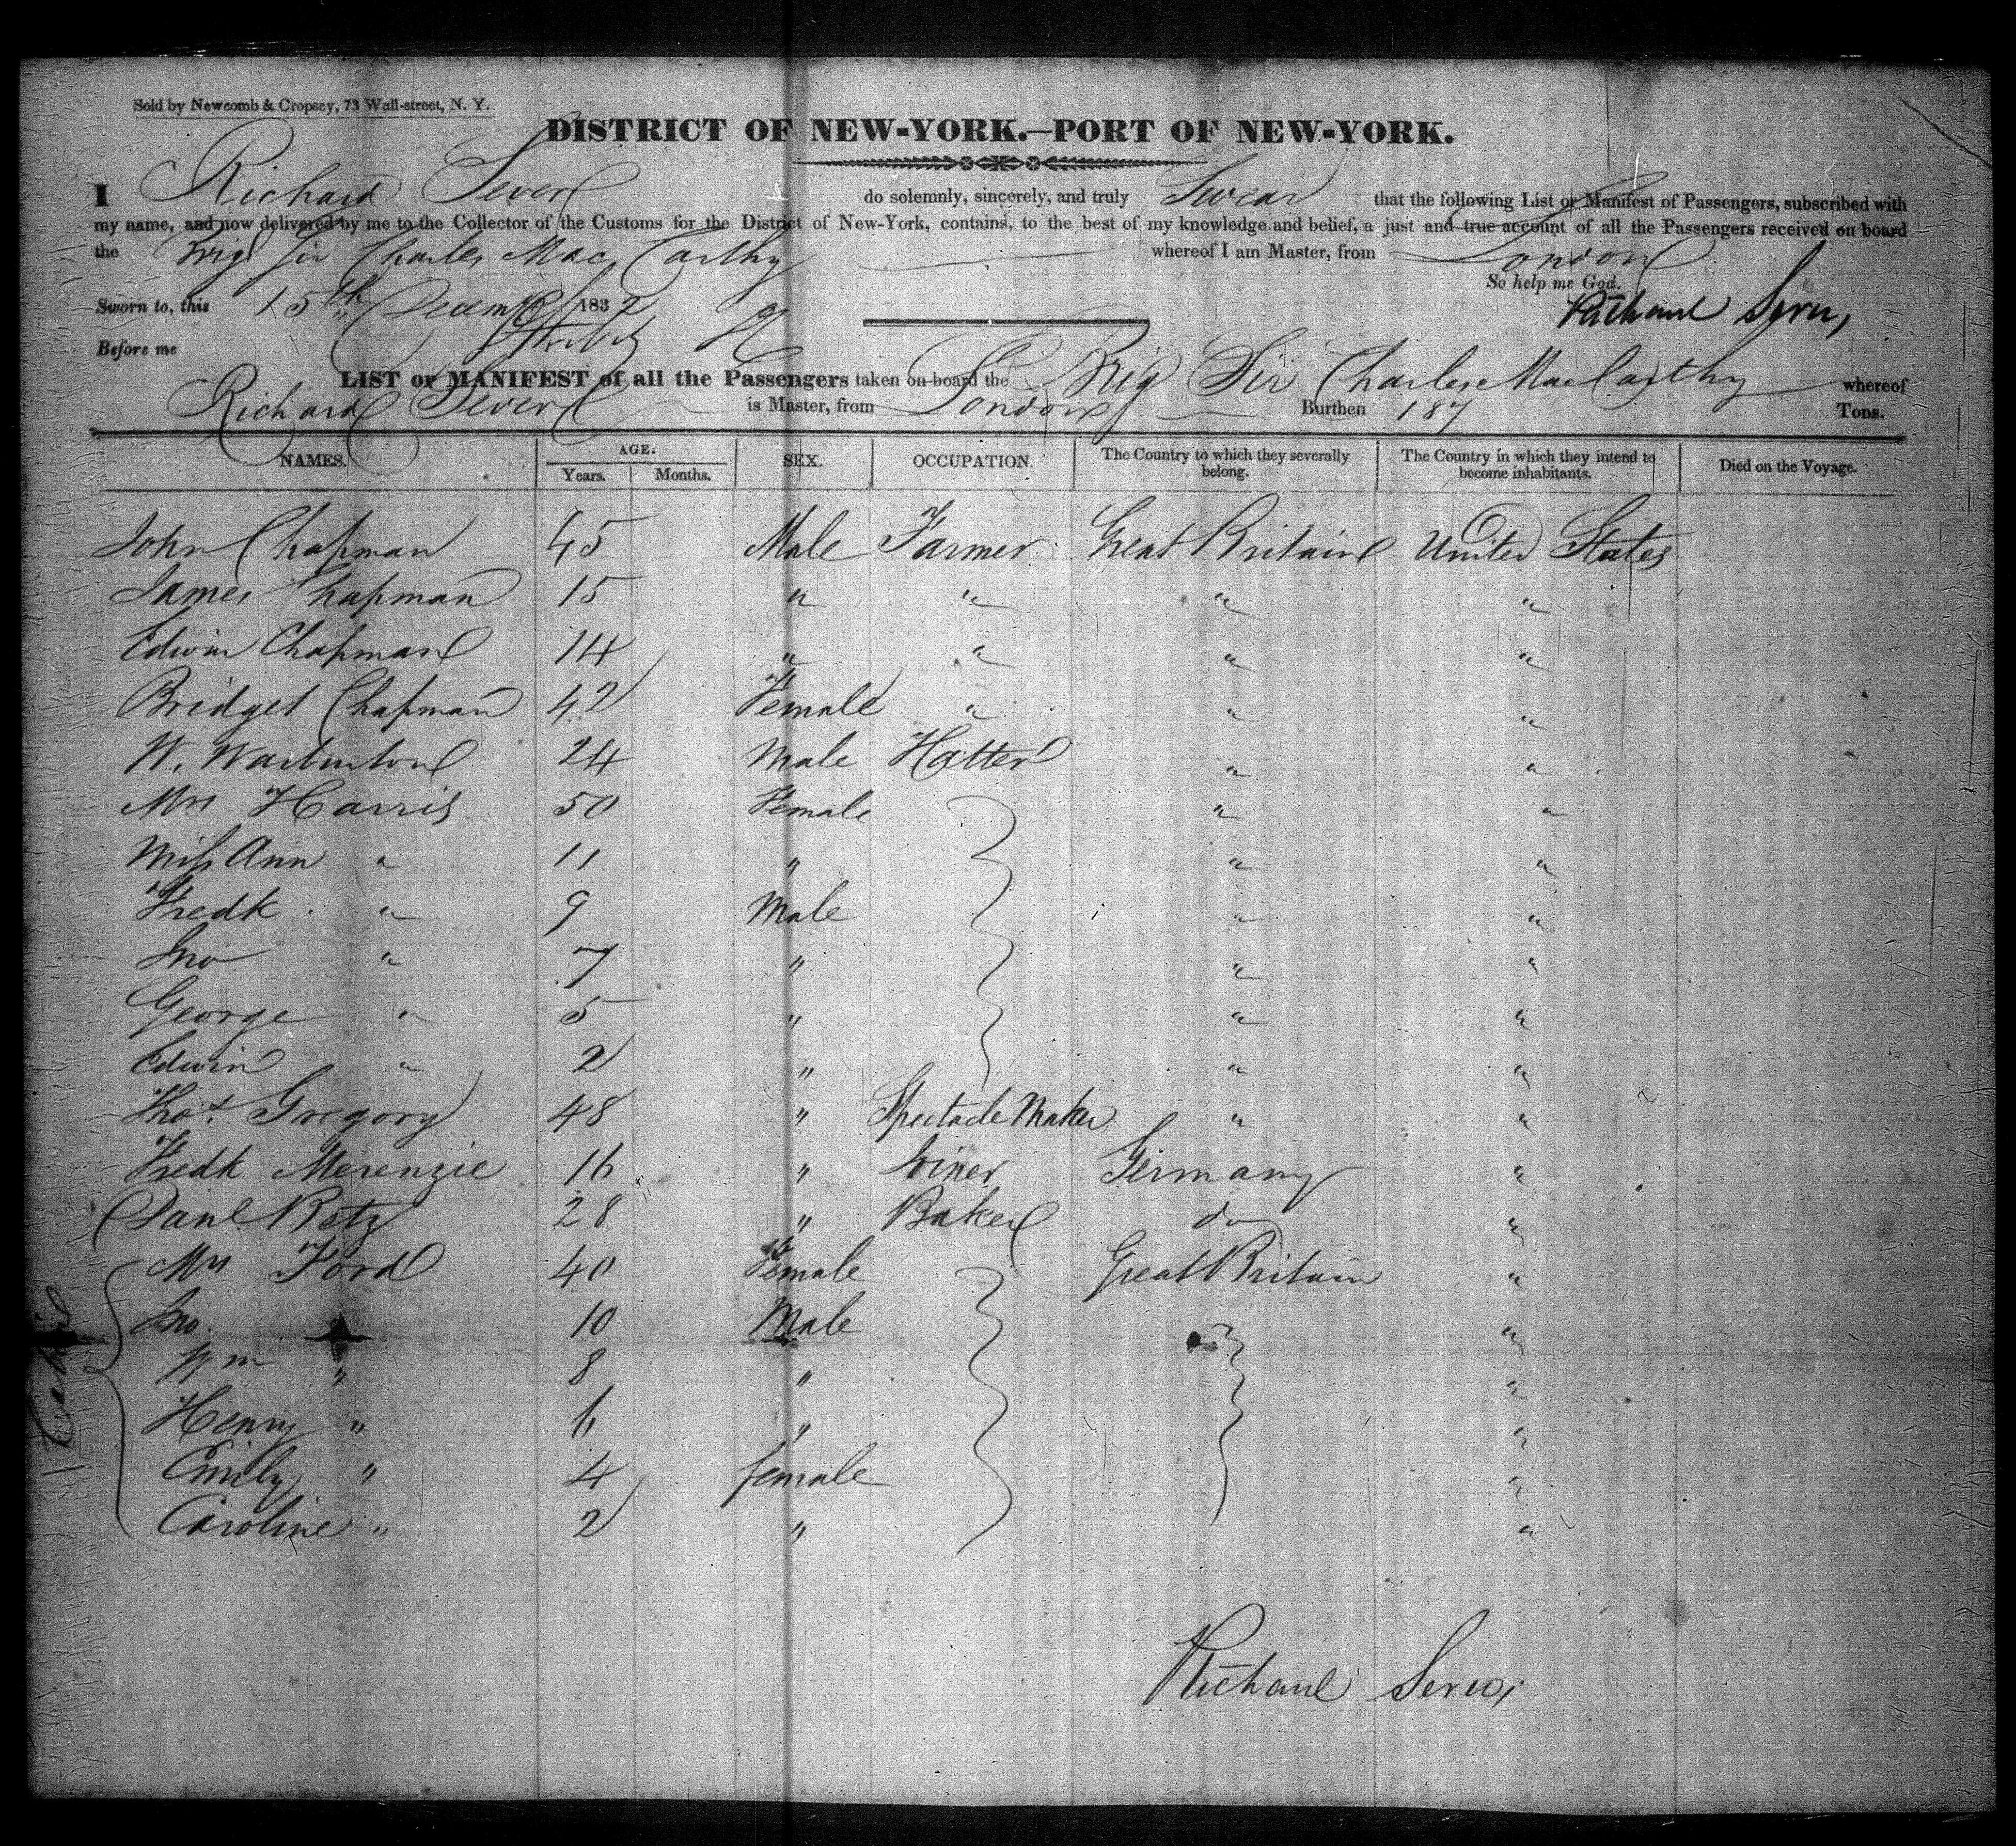 Sold by Newcomb & Cropsey, 73 Wall-street, N. Y.
DISTRICT OF NEW-YORK.—PORT OF NEW-YORK.
I Richard Sever do solemnly, sincerely, and truly Swear that the following List or Manifest of Passengers, subscribed with
my name, and now delivered by me to the Collector of the Customs for the District of New-York, contains, to the best of my knowledge and belief, a just and true account of all the Passengers received on board
the Brig Sir Charles Mac Carthy whereof I am Master, from London
So help me God.
Sworn to, this 15th December 1832
Richard
Before me
LIST or MANIFEST of all the Passengers taken on board the Brig Sir Charles MacCarthy whereof
Richard Sever is Master, from London Burthen 187 Tons.
NAMES. AGE. SEX. OCCUPATION. The Country to which they severally belong. The Country in which they intend to become inhabitants. Died on the Voyage.
Years. Months.
John Chapman 45 Male Farmer Great Britain United States
James Chapman 15 " " " "
Edwin Chapman 14 " " " "
Bridget Chapman 42 Female " " "
W. Warburton 24 Male Hatter " "
Mrs Harris 50 Female " "
Miss Ann " 11 " " "
Fredk " 9 Male " "
Jno " 7 " " "
George " 5 " " "
Edwin " 2 " " "
Thos. Gregory 48 " Spectacle Maker " "
Fredk Merenzie 16 " Joiner Germany "
Danl Betz 28 " Baker do "
Mrs Ford 40 Female Great Britain "
Jno. 10 Male "
Wm " 8 " "
Henry " 6 " "
Emily " 4 female "
Caroline " 2 " "
Richard